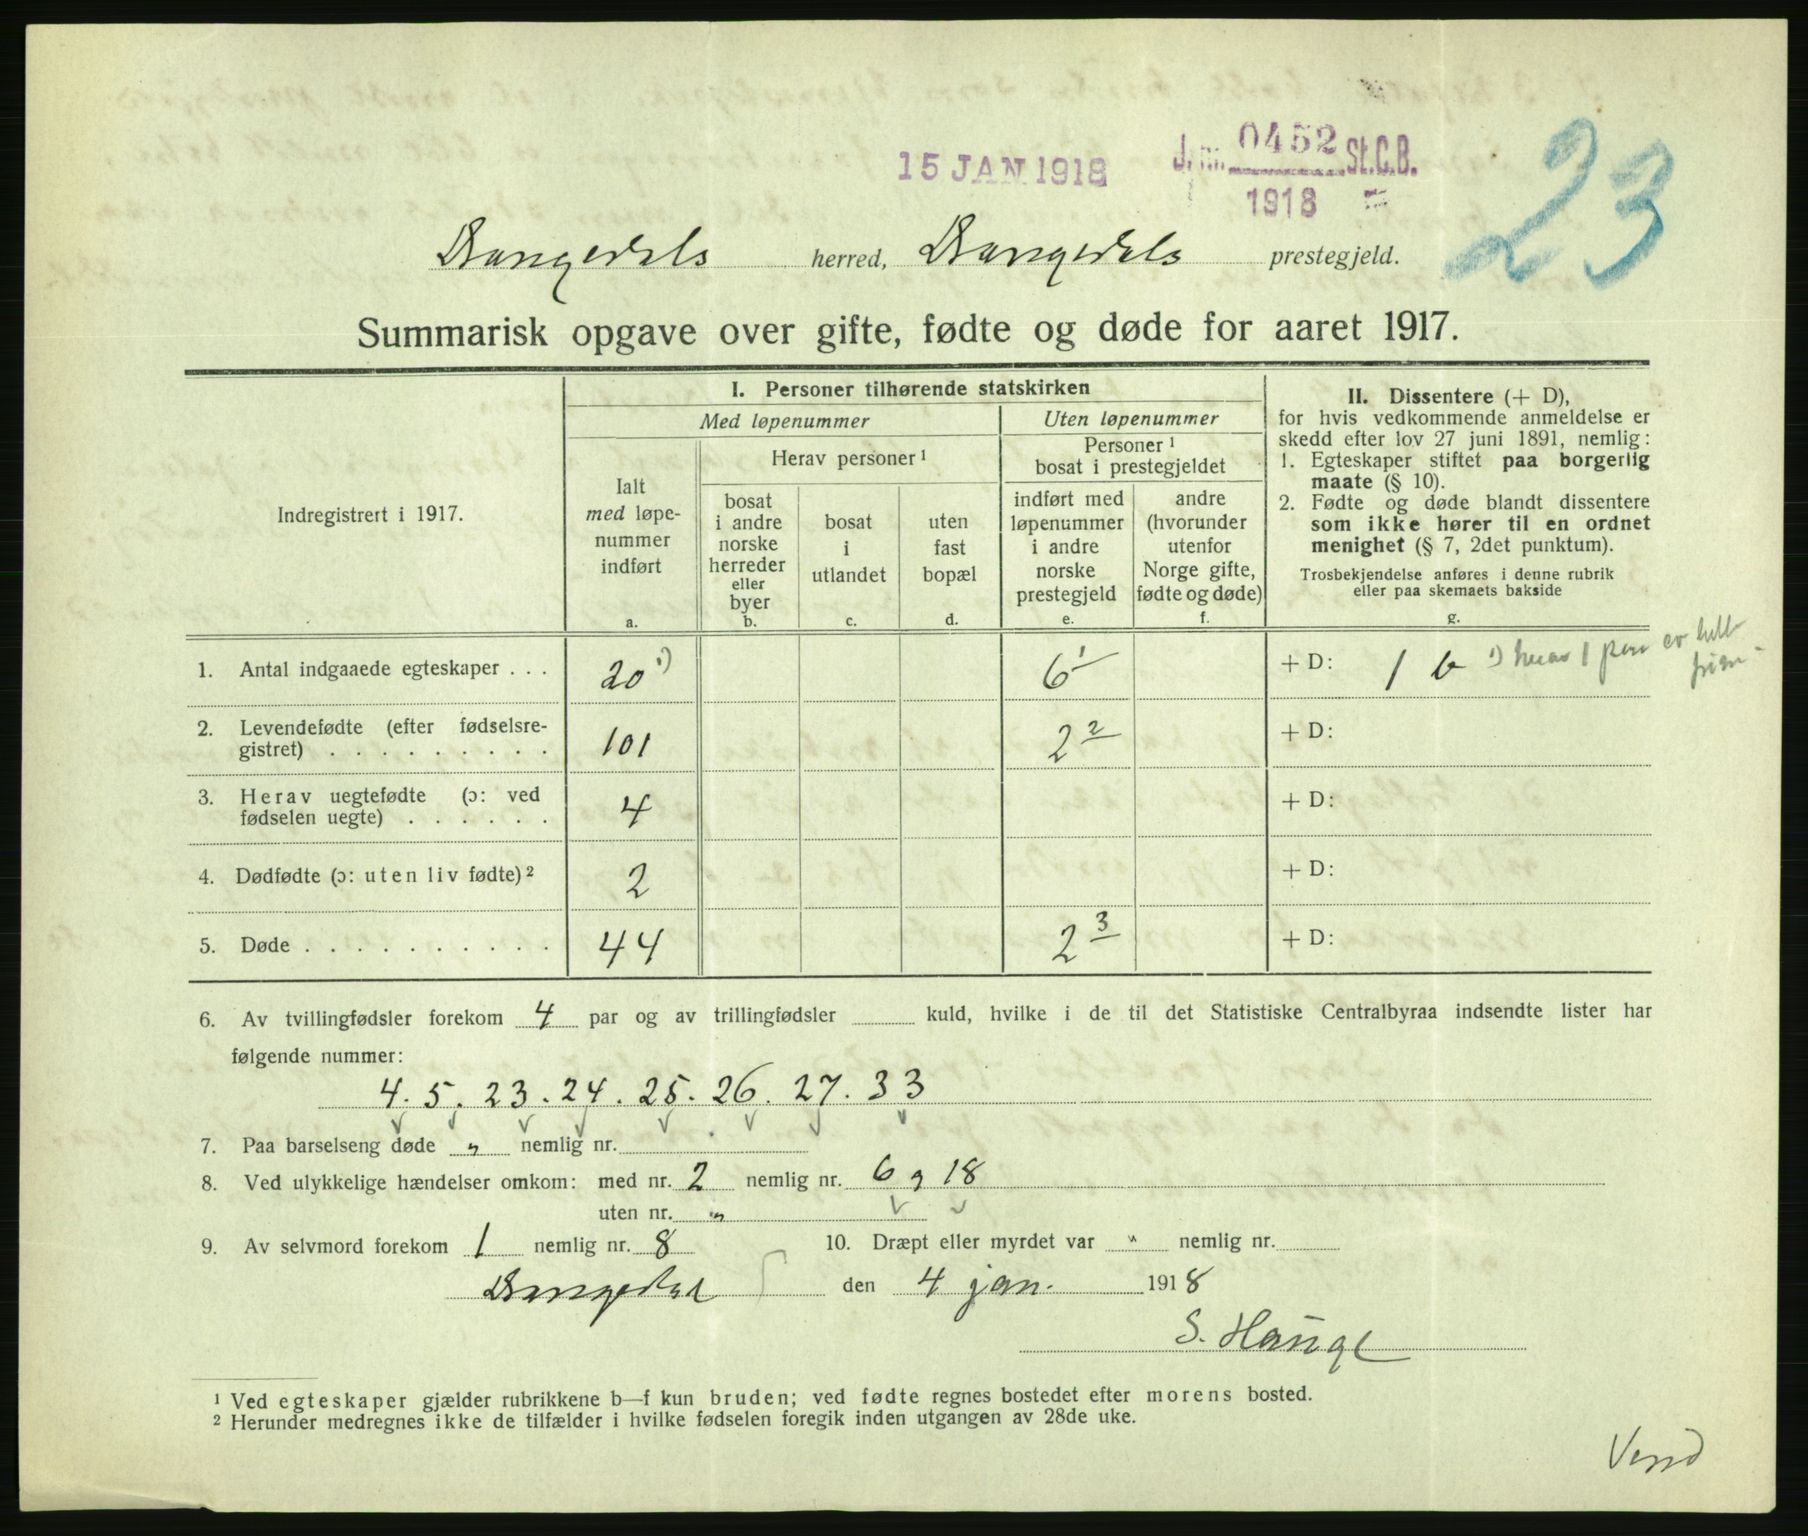 15 JAN 1918
J. nr. 0452 St.C.B.
1918
23
Drangedals herred, Drangedals prestegjeld.
Summarisk opgave over gifte, fødte og døde for aaret 1917.
Indregistrert i 1917.
I. Personer tilhørende statskirken
Med løpenummer
Uten løpenummer
Ialt
med løpe-
nummer
indført
a.
Herav personer ¹
bosat
i andre
norske
herreder
eller
byer
b.
bosat
i
utlandet
c.
uten
fast
bopæl
d.
Personer ¹
bosat i prestegjeldet
indført med
løpenummer
i andre
norske
prestegjeld
e.
andre
(hvorunder
utenfor
Norge gifte,
fødte og døde)
f.
II. Dissentere (+ D),
for hvis vedkommende anmeldelse er
skedd efter lov 27 juni 1891, nemlig:
1. Egteskaper stiftet paa borgerlig
maate (§ 10).
2. Fødte og døde blandt dissentere
som ikke hører til en ordnet
menighet (§ 7, 2det punktum).
Trosbekjendelse anføres i denne rubrik
eller paa skemaets bakside
g.
1. Antal indgaaede egteskaper . . . 20 ¹) 6 1 + D: 1 b ¹) herav 1 par er
2. Levendefødte (efter fødselsre-
gistret) . . . . . . . . . 101 2 2 + D:
3. Herav uegtefødte (ɔ: ved
fødselen uegte) . . . . . . 4 + D:
4. Dødfødte (ɔ: uten liv fødte) ² 2 + D:
5. Døde . . . . . . . . . . 44 2 3 + D:
6. Av tvillingfødsler forekom 4 par og av trillingfødsler kuld, hvilke i de til det Statistiske Centralbyraa indsendte lister har
følgende nummer:
4. 5. 23. 24. 25. 26. 27. 33
7. Paa barselseng døde " nemlig nr.
8. Ved ulykkelige hændelser omkom: med nr. 2 nemlig nr. 6 og 18
uten nr. "
9. Av selvmord forekom 1 nemlig nr. 8 10. Dræpt eller myrdet var " nemlig nr.
Drangedal den 4 jan. 1918
S. Hauge
¹ Ved egteskaper gjælder rubrikkene b—f kun bruden; ved fødte regnes bostedet efter morens bosted.
² Herunder medregnes ikke de tilfælder i hvilke fødselen foregik inden utgangen av 28de uke.
Vend